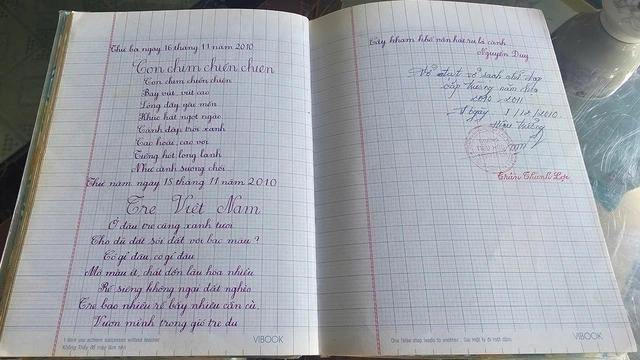 Thứ ba ngày 16 tháng 11 năm 2010
Con chim chiền chiện
Con chim chiền chiện
Bay vút, vút cao
Lòng đầy yêu mến
Khúc hát ngọt ngào
Cánh đập trời xanh
Cao hoài, cao vợi
Tiếng hót long lanh
Như cành sương chói
Thứ năm ngày 18 tháng 11 năm 2010
Tre Việt Nam
Ở đâu tre cũng xanh tươi
Cho dù đất sỏi đất vôi bạc màu?
Có gì đâu, có gì đâu
Mỡ màu ít, chắt dồn lâu hóa nhiều
Rễ siêng không ngại đất nghèo
Tre bao nhiêu rễ bấy nhiêu cần cù
Vươn mình trong gió tre đu
No one can achieve success without teacher
Không Thầy đố mày làm nên
VIBOOK
Cây kham khổ vẫn hát ru lá cành
Nguyễn Duy
Vở đạt vở sạch chữ đẹp
cấp trường năm học
2010 - 2011
Ngày 1/12/2010
Hiệu trưởng
Trần Thanh Lợi
One false step leads to another : Sai một ly đi một dặm
VIBOOK